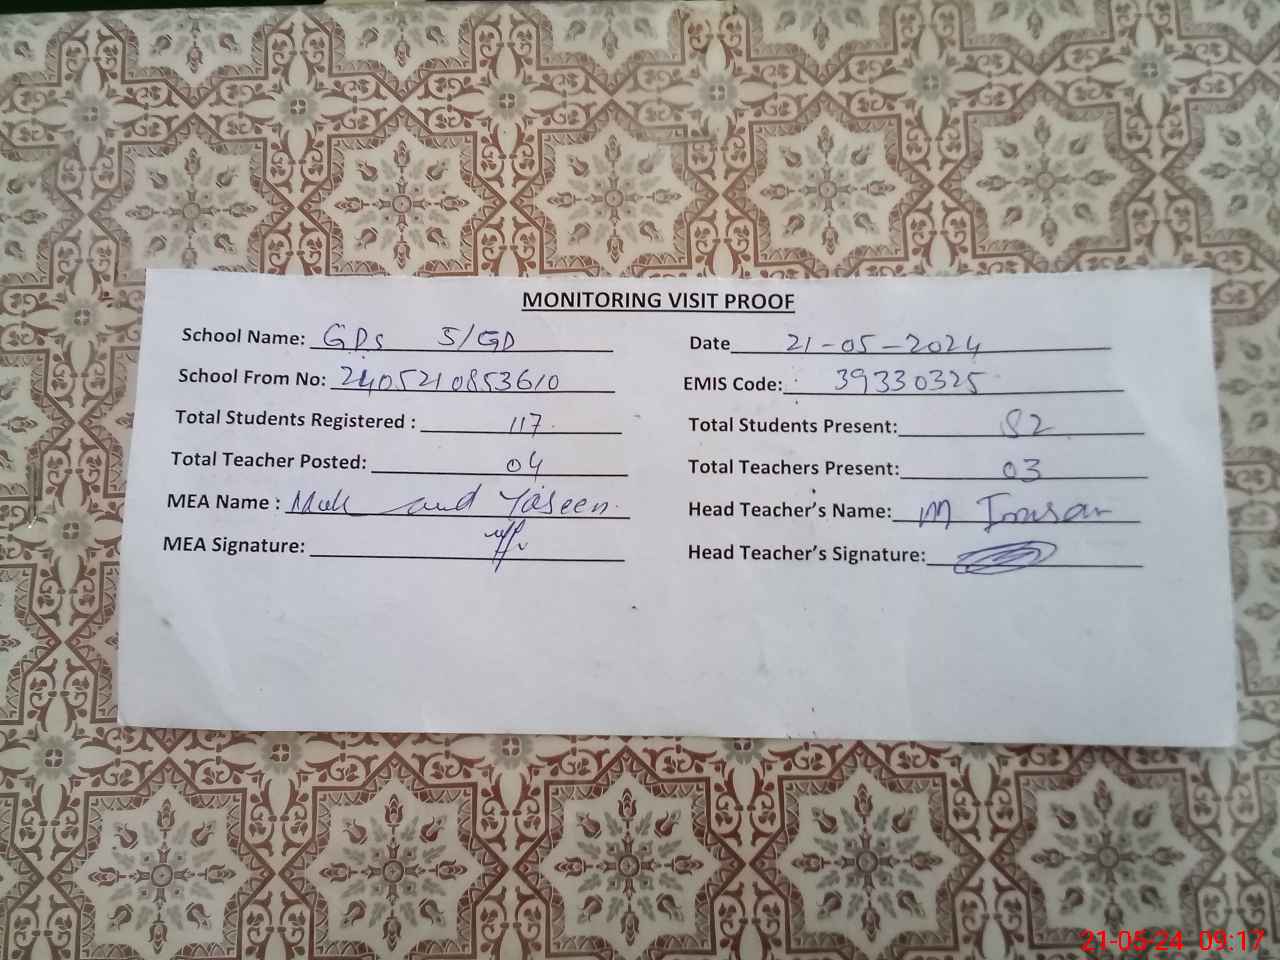 MONITORING VISIT PROOF
School Name: GPS 5/GD Date 21-05-2024
School From No: 2405210853610 EMIS Code: 39330325
Total Students Registered : 117 Total Students Present: 82
Total Teacher Posted: 04 Total Teachers Present: 03
MEA Name : Yaseen Head Teacher's Name: M Imran
MEA Signature: Head Teacher's Signature:
21-05-24 09:17